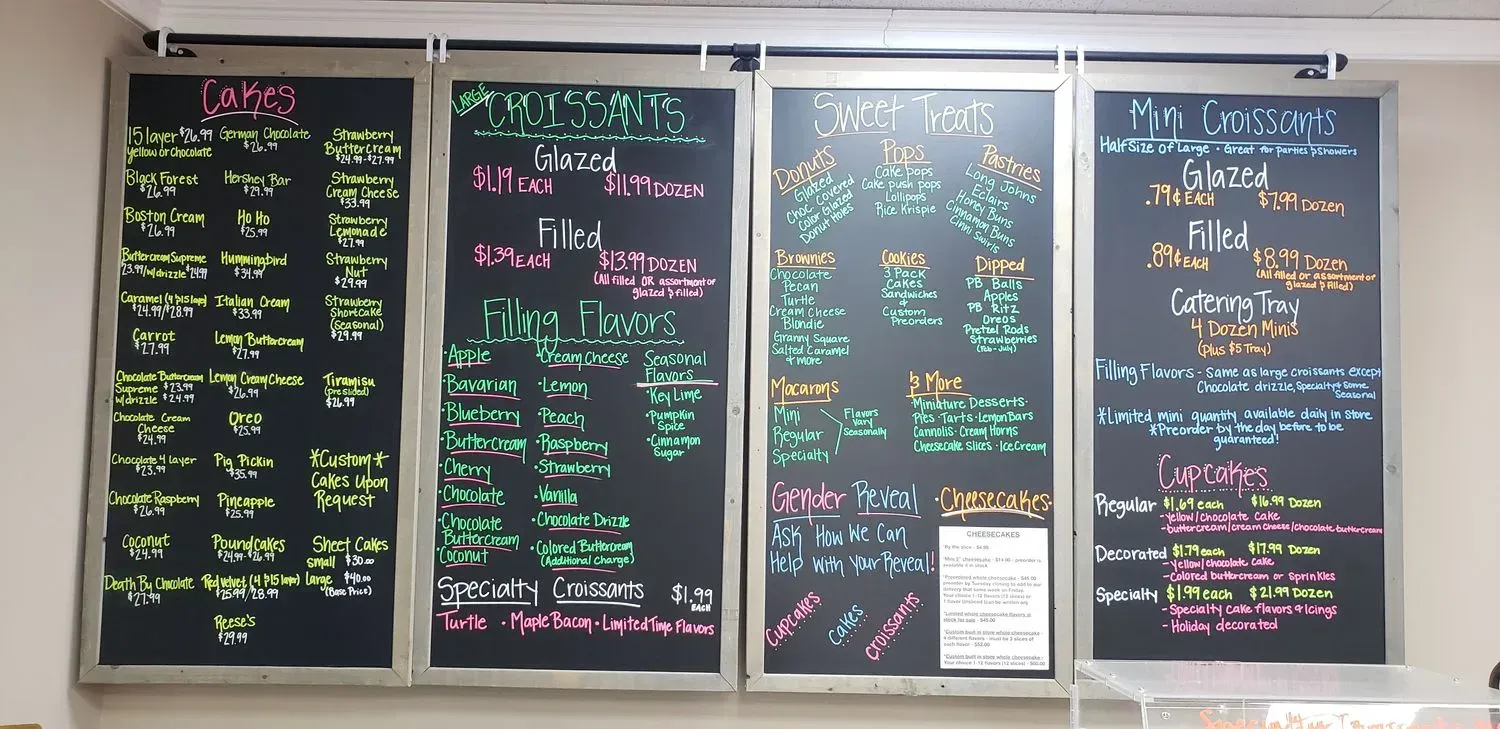 Cakes
15 layer $26.99
Yellow or Chocolate
Black Forest
$26.99
Boston Cream
$26.99
Buttercream Supreme
23.99/w/drizzle $24.99
Caramel (4 & 15 layer)
$24.99/$28.99
Carrot
$27.99
Chocolate Buttercream
Supreme $23.99
w/drizzle $24.99
Chocolate Cream
Cheese
$24.99
Chocolate 4 layer
$23.99
Chocolate Raspberry
$26.99
Coconut
$24.99
Death By Chocolate
$27.99
German Chocolate
$26.99
Hershey Bar
$29.99
Ho Ho
$25.99
Hummingbird
$34.99
Italian Cream
$33.99
Lemon Buttercream
$27.99
Lemon Cream Cheese
$26.99
Oreo
$25.99
Pig Pickin
$35.99
Pineapple
$25.99
Poundcakes
$24.99-$26.99
Red Velvet (4 & 15 layer)
$25.99/28.99
Reese's
$29.99
Strawberry
Buttercream
$24.99-$27.99
Strawberry
Cream Cheese
$33.99
Strawberry
Lemonade
$27.99
Strawberry
Nut
$29.99
Strawberry
Shortcake
(Seasonal)
$29.99
Tiramisu
(presliced)
$26.99
*Custom*
Cakes Upon
Request
Sheet Cakes
Small $30.00
Large $40.00
(Base Price)
LARGE
CROISSANTS
Glazed
$1.19 EACH $11.99 DOZEN
Filled
$1.39 EACH $13.99 DOZEN
(All filled OR assortment of
glazed & filled)
Filling Flavors
·Apple
·Bavarian
·Blueberry
·Buttercream
·Cherry
·Chocolate
·Chocolate
Buttercream
·Coconut
·Cream Cheese
·Lemon
·Peach
·Raspberry
·Strawberry
·Vanilla
·Chocolate Drizzle
·Colored Buttercream
(Additional Charge)
Seasonal
Flavors
·Key Lime
·Pumpkin
Spice
·Cinnamon
Sugar
Specialty Croissants $1.99
EACH
Turtle · Maple Bacon · Limited Time Flavors
Sweet Treats
Donuts
Glazed
Choc Covered
Color Glazed
Donut Holes
Pops
Cake pops
Cake push pops
Lollipops
Rice Krispie
Pastries
Long Johns
Eclairs
Honey Buns
Cinnamon Buns
Cinni Swirls
Brownies
Chocolate
Pecan
Turtle
Cream Cheese
Blondie
Granny Square
Salted Caramel
& more
Cookies
3 Pack
Cakes
Sandwiches
&
Custom
Preorders
Dipped
PB Balls
Apples
PB Ritz
Oreos
Pretzel Rods
Strawberries
(Feb-July)
Macarons
Mini
Regular
Specialty
Flavors
Vary
Seasonally
& More
·Miniature Desserts·
Pies·Tarts·Lemon Bars
Cannolis·Cream Horns
Cheesecake Slices·Ice Cream
Gender Reveal
Ask How We Can
Help with your Reveal!
Cupcakes
Cakes
Croissants
·Cheesecakes·
CHEESECAKES
*By the slice - $4.99
*Custom built in store whole cheesecake -
4 different flavors - must be 3 slices of
each flavor - $52.00
*Custom built in store whole cheesecake -
Your choice 1-12 flavors (12 slices) - $60.00
Mini Croissants
Half Size of Large · Great for parties & showers
Glazed
.79¢ EACH $7.99 DOZEN
Filled
.89¢ EACH $8.99 DOZEN
(All filled or assortment of
glazed & filled)
Catering Tray
4 Dozen Minis
(Plus $5 Tray)
Filling Flavors - Same as large croissants except
Chocolate drizzle, Specialty & some
Seasonal
*Limited mini quantity available daily in store
*Preorder by the day before to be
guaranteed!
Cupcakes
Regular $1.69 each $16.99 Dozen
-Yellow/chocolate Cake
-buttercream/cream cheese/chocolate buttercream
Decorated $1.79 each $17.99 Dozen
-Yellow/chocolate cake
-Colored buttercream or sprinkles
Specialty $1.99 each $21.99 Dozen
-Specialty cake flavors & icings
-Holiday decorated